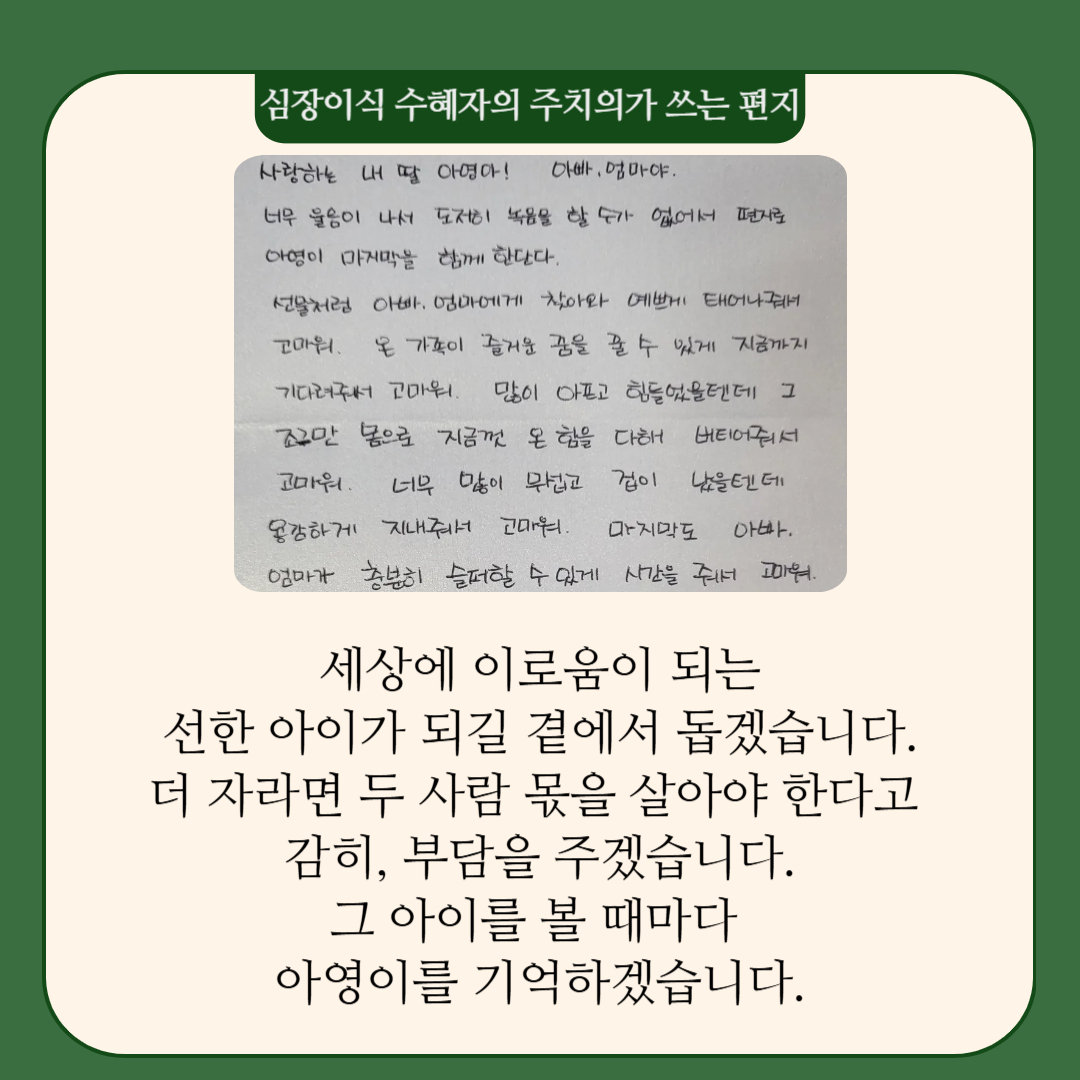 심장이식 수혜자의 주치의가 쓰는 편지
사랑하는 내 딸 아영아! 아빠, 엄마야.
너무 울음이 나서 도저히 녹음을 할 수가 없어서 편지로
아영이 마지막을 함께 한단다.
선물처럼 아빠, 엄마에게 찾아와 예쁘게 태어나줘서
고마워. 온 가족이 즐거운 꿈을 꿀 수 있게 지금까지
기다려주서 고마워. 많이 아프고 힘들었을텐데 그
조그만 몸으로 지금껏 온 힘을 다해 버티어줘서
고마워. 너무 많이 무섭고 겁이 났을텐데
용감하게 지내줘서 고마워. 마지막도 아빠,
엄마가 충분히 슬퍼할 수 있게 시간을 줘서 고마워.
세상에 이로움이 되는
선한 아이가 되길 곁에서 돕겠습니다.
더 자라면 두 사람 몫을 살아야 한다고
감히, 부담을 주겠습니다.
그 아이를 볼 때마다
아영이를 기억하겠습니다.